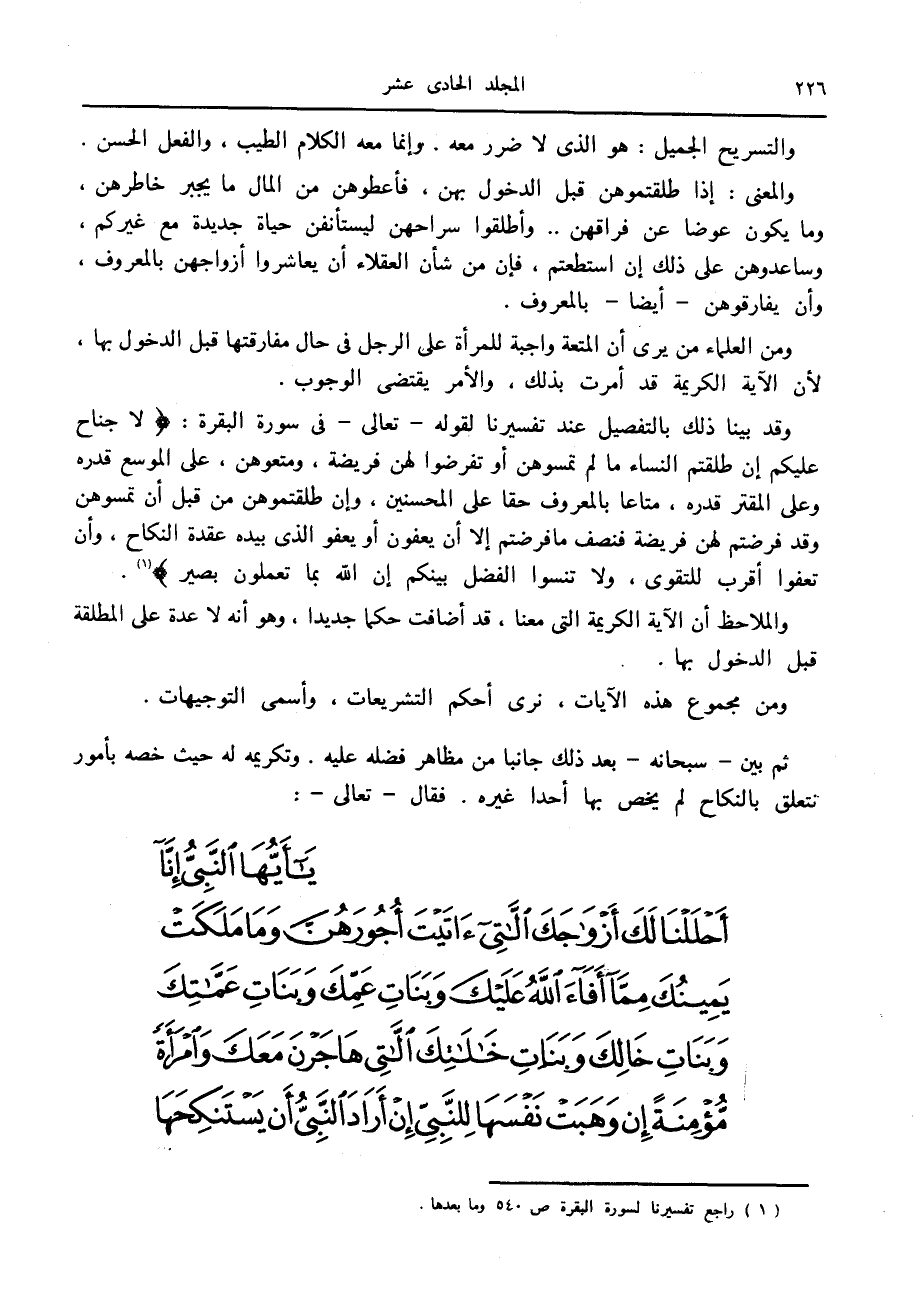 ٢٢٦ المجلد الحادى عشر
والتسريح الجميل : هو الذى لا ضرر معه . وإنما معه الكلام الطيب ، والفعل الحسن .
والمعنى : إذا طلقتموهن قبل الدخول بهن ، فأعطوهن من المال ما يجبر خاطرهن ،
وما يكون عوضا عن فراقهن .. وأطلقوا سراحهن ليستأنفن حياة جديدة مع غيركم ،
وساعدوهن على ذلك إن استطعتم ، فإن من شأن العقلاء أن يعاشروا أزواجهن بالمعروف ،
وأن يفارقوهن – أيضا – بالمعروف .
ومن العلماء من يرى أن المتعة واجبة للمرأة على الرجل فى حال مفارقتها قبل الدخول بها ،
لأن الآية الكريمة قد أمرت بذلك ، والأمر يقتضى الوجوب .
وقد بينا ذلك بالتفصيل عند تفسيرنا لقوله – تعالى – فى سورة البقرة : ﴿ لا جناح
عليكم إن طلقتم النساء ما لم تمسوهن أو تفرضوا لهن فريضة ، ومتعوهن ، على الموسع قدره
وعلى المقتر قدره ، متاعا بالمعروف حقا على المحسنين ، وإن طلقتموهن من قبل أن تمسوهن
وقد فرضتم لهن فريضة فنصف مافرضتم إلا أن يعفون أو يعفو الذى بيده عقدة النكاح ، وأن
تعفوا أقرب للتقوى ، ولا تنسوا الفضل بينكم إن الله بما تعملون بصير ﴾(١) .
والملاحظ أن الآية الكريمة التى معنا ، قد أضافت حكما جديدا ، وهو أنه لا عدة على المطلقة
قبل الدخول بها .
ومن مجموع هذه الآيات ، نرى أحكم التشريعات ، وأسمى التوجيهات .
ثم بين – سبحانه – بعد ذلك جانبا من مظاهر فضله عليه . وتكريمه له حيث خصه بأمور
تتعلق بالنكاح لم يخص بها أحدا غيره . فقال – تعالى – :
يَـٰٓأَيُّهَا ٱلنَّبِىُّ إِنَّآ
أَحْلَلْنَا لَكَ أَزْوَٰجَكَ ٱلَّـٰتِىٓ ءَاتَيْتَ أُجُورَهُنَّ وَمَا مَلَكَتْ
يَمِينُكَ مِمَّآ أَفَآءَ ٱللَّهُ عَلَيْكَ وَبَنَاتِ عَمِّكَ وَبَنَاتِ عَمَّـٰتِكَ
وَبَنَاتِ خَالِكَ وَبَنَاتِ خَـٰلَـٰتِكَ ٱلَّـٰتِى هَاجَرْنَ مَعَكَ وَٱمْرَأَةً
مُّؤْمِنَةً إِن وَهَبَتْ نَفْسَهَا لِلنَّبِىِّ إِنْ أَرَادَ ٱلنَّبِىُّ أَن يَسْتَنكِحَهَا
( ١ ) راجع تفسيرنا لسورة البقرة ص ٥٤٠ وما بعدها .